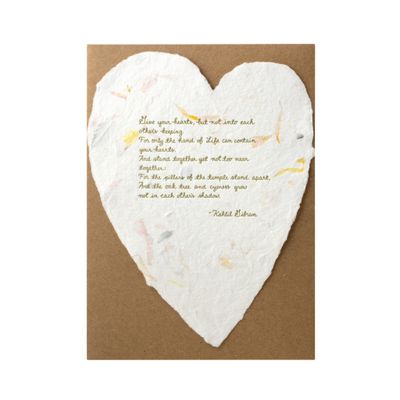 Give your hearts, but not into each
other's keeping.
For only the hand of Life can contain
your hearts.
And stand together yet not too near
together:
For the pillars of the temple stand apart,
And the oak tree and cypress grow
not in each other's shadow.
-Kahlil Gibran